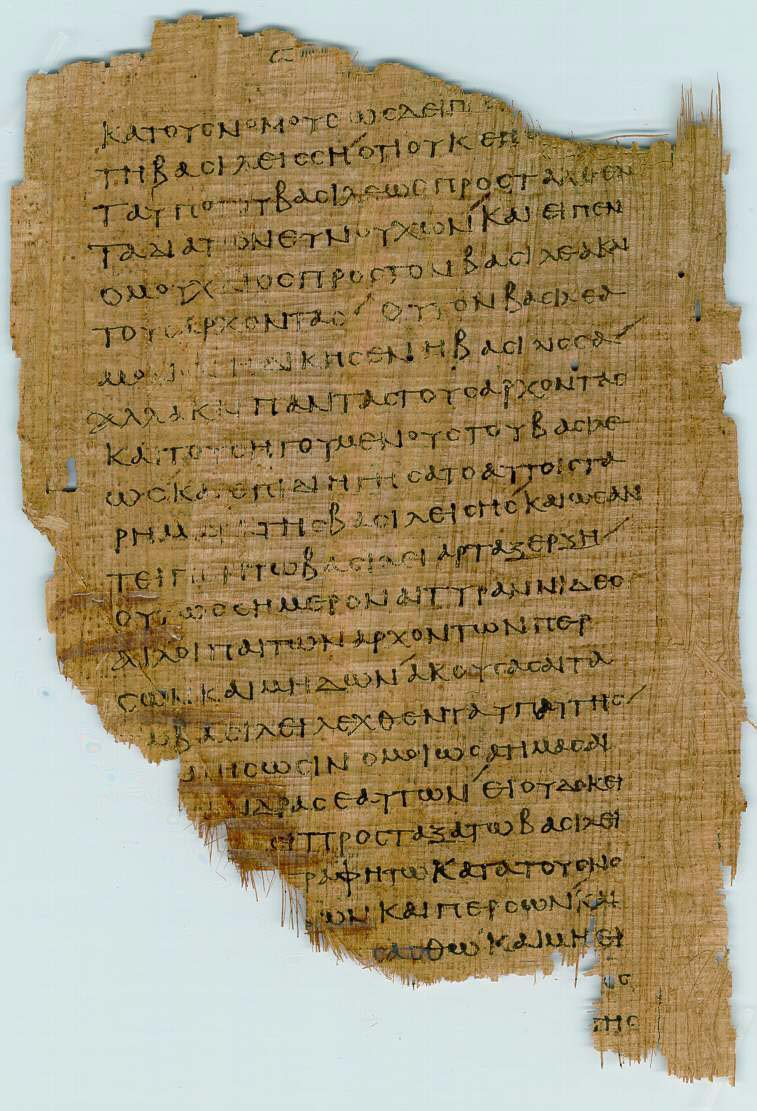 ΚΑΤΟΥСΝΟΜΟΥС ωСΔΕΙΠ
ΤΗΒΑСΙΛΕΙССΗ ΟΤΙΟΥΚΕΠΟ
ΤΑΥΠΟΤΟΥΒΑСΙΛΕωСΠΡΟСΤΑΧΘΕΝ
ΤΑΔΙΑΤωΝΕΥΝΟΥΧΙωΝ ΚΑΙΕΙΠΕΝ
ΟΜΟΥΧΑΙΟСΠΡΟСΤΟΝΒΑСΙΛΕΑΚΑΙ
ΤΟΥСΑΡΧΟΝΤΑС ΟΥΤΟΝΒΑСΙΛΕΑ
ΜΟΝΟΝΗΔΙΚΗСΕΝΗΒΑСΙΛΙССΑ
ΑΛΛΑΚΑΙΠΑΝΤΑСΤΟΥСΑΡΧΟΝΤΑС
ΚΑΙΤΟΥСΗΓΟΥΜΕΝΟΥСΤΟΥΒΑСΙΛΕ
ωСΚΑΙΕΠΙΔΙΗΓΗСΑΤΟΑΥΤΟΙСΤΑ
ΡΗΜΑΤΑΤΗСΒΑСΙΛΕΙСΗС ΚΑΙωСΑΝ
ΤΕΙΠΕΝΤωΒΑСΙΛΕΙΑΡΤΑΞΕΡΞΗ
ΟΥΤωССΗΜΕΡΟΝΑΙΤΥΡΑΝΝΙΔΕС
ΑΙΛΟΙΠΑΙΤωΝΑΡΧΟΝΤωΝΠΕΡ
СωΝΚΑΙΜΗΔωΝ ΑΚΟΥСΑСΑΙΤΑ
ΤωΒΑСΙΛΕΙΛΕΧΘΕΝΤΑΥΠΑΥΤΗС
ΜΗСωСΙΝ ΟΜΟΙωСΑΤΙΜΑСΑΙ
ΝΔΡΑСΕΑΥΤωΝ ΕΙΟΥΔΟΚΕΙ
ΕΙΠΡΟСΤΑΞΑΤωΒΑСΙΛΕΙ
ΡΑΦΗΤωΚΑΤΑΤΟΥСΝΟ
ωΝΚΑΙΠΕΡСωΝ ΚΑΙ
СΑСΘω ΚΑΙΜΗΕΙ
ΟС
ΤΗС